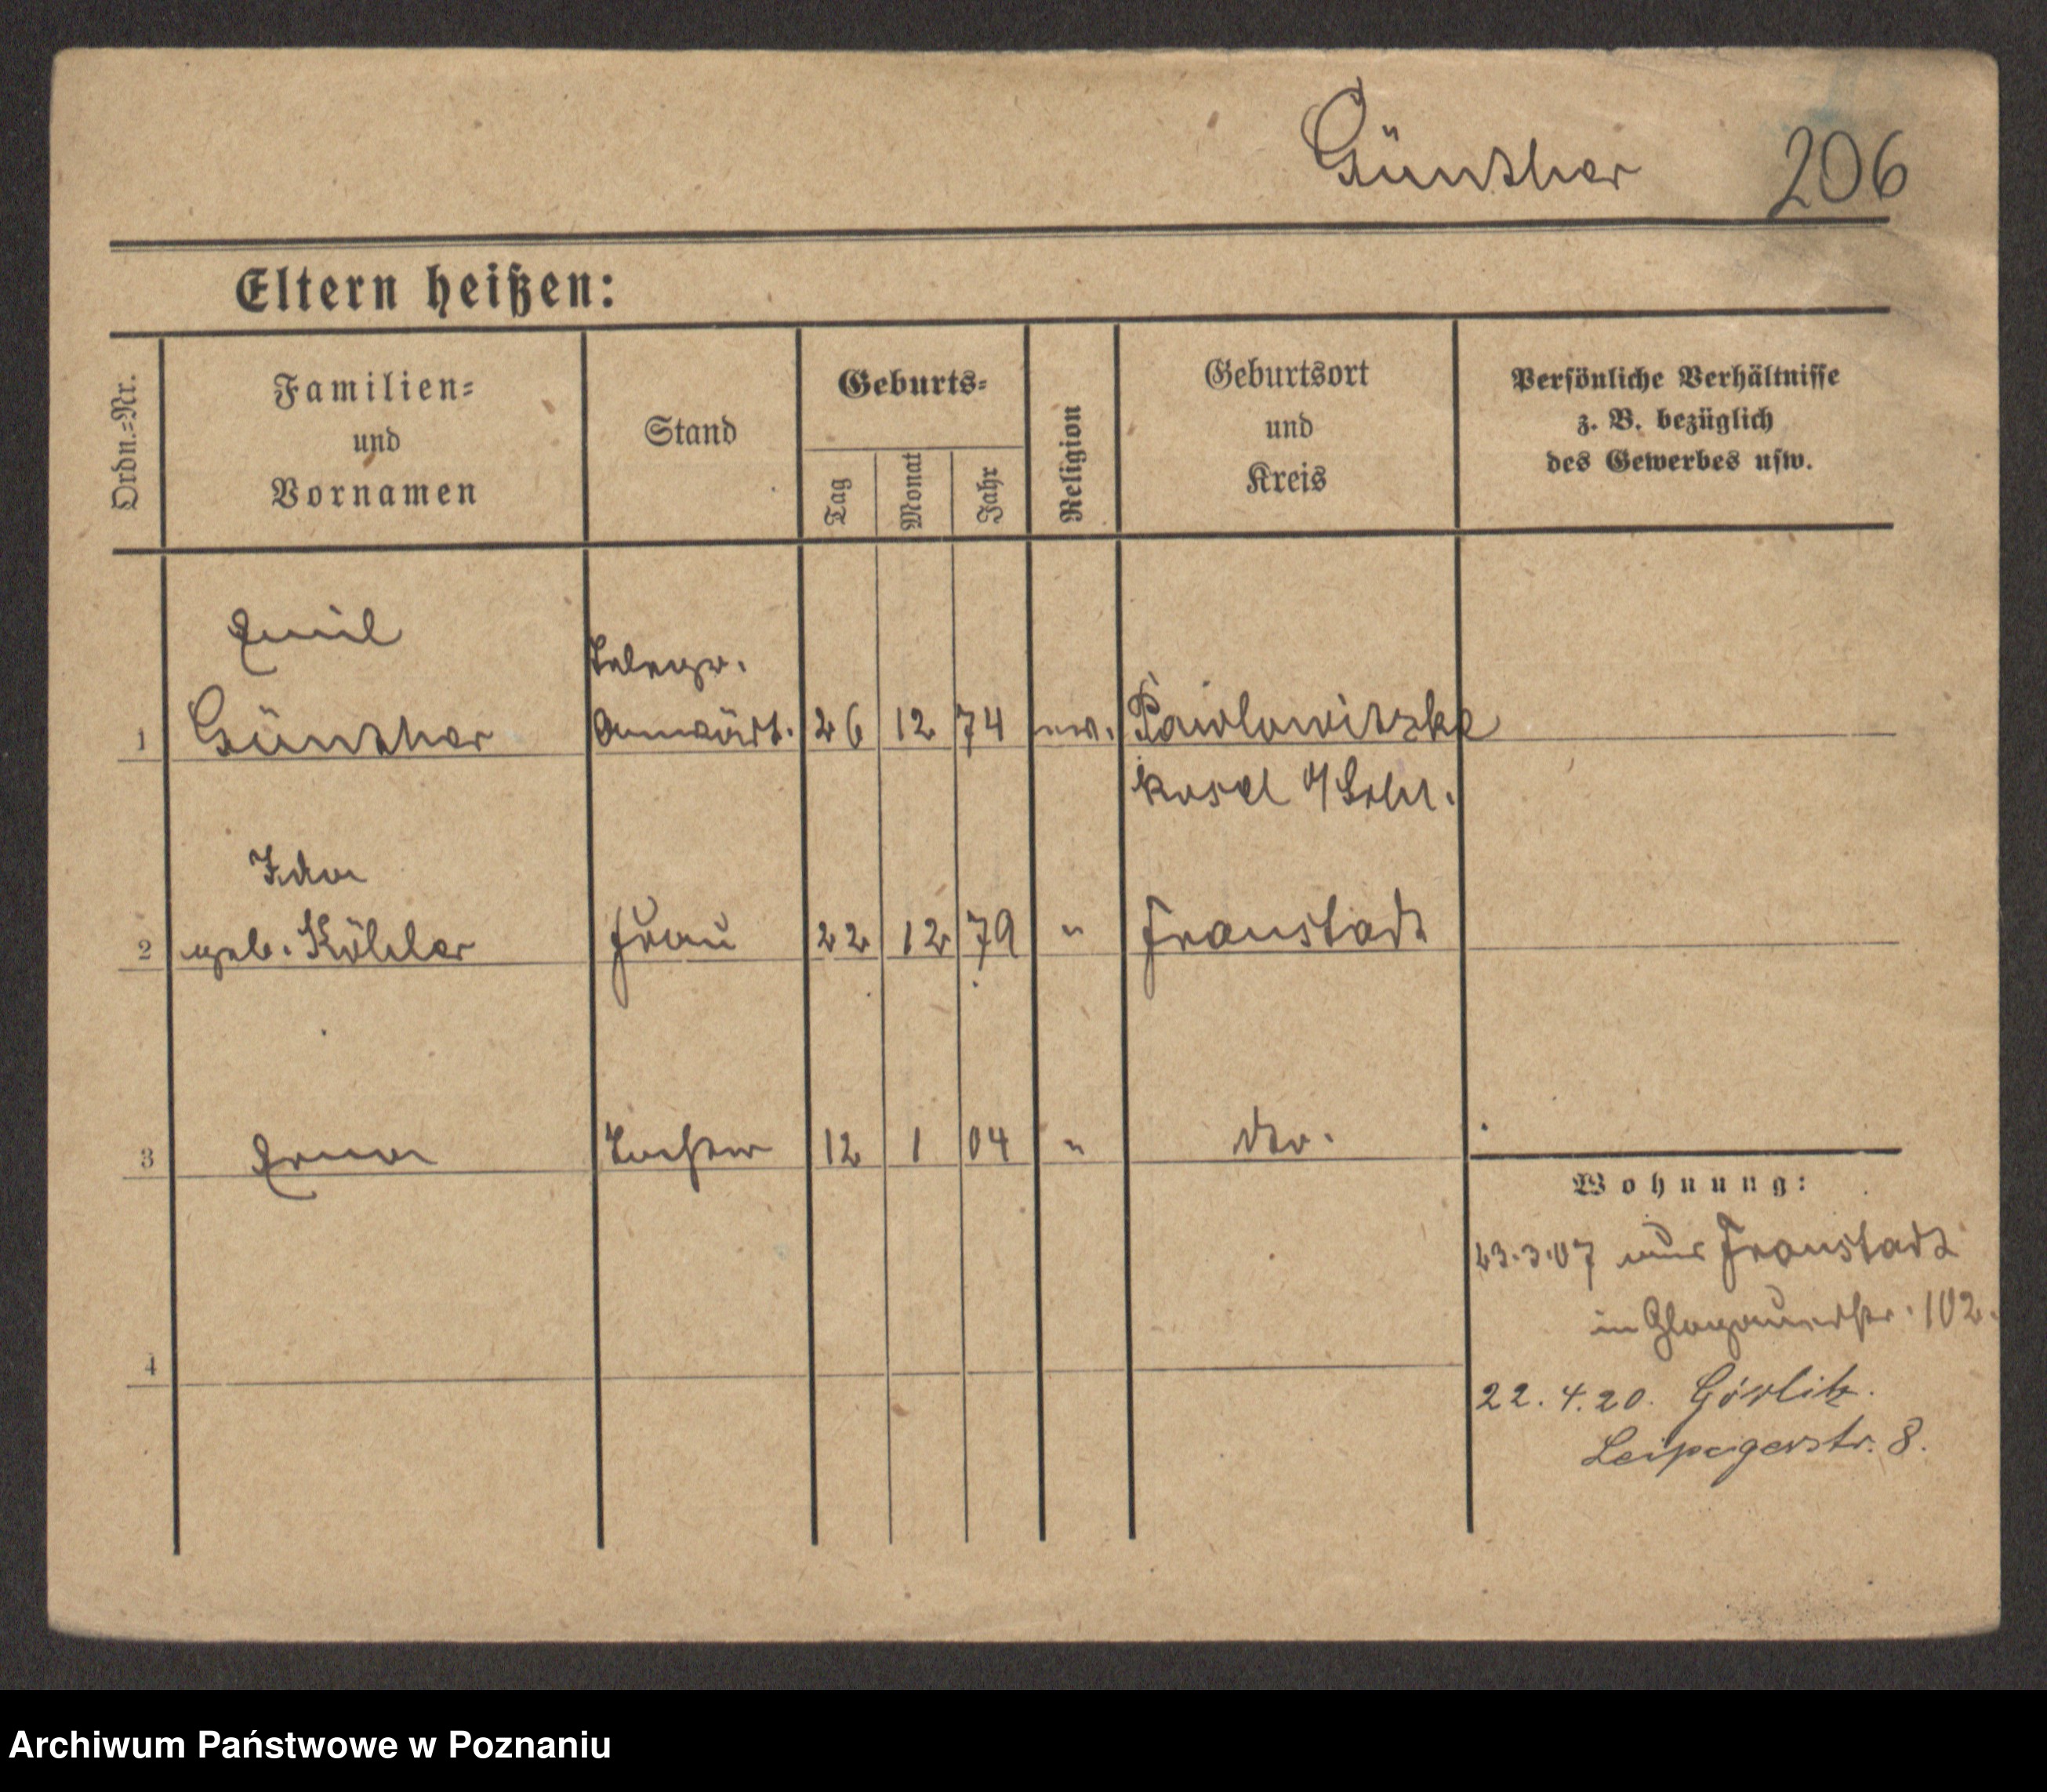 Günther 206
Eltern heißen:
Ordn.=Nr.
Familien=
und
Vornamen
Stand
Geburts=
Tag
Monat
Jahr
Religion
Geburtsort
und
Kreis
Persönliche Verhältnisse
z. B. bezüglich
des Gewerbes usw.
Emil
Telegr.
1 Günther Anwärt. 26 12 74 ev. Pawlowitzke
Kosel O/Schl.
Ida
2 geb. Köhler Frau 22 12 79 " Fraustadt
3 Erna Tochter 12 1 04 " dto.
Wohnung:
23.3.07 aus Fraustadt
in Glogauerstr. 102.
4
22.4.20. Görlitz.
Leipzigerstr. 8.
Archiwum Państwowe w Poznaniu